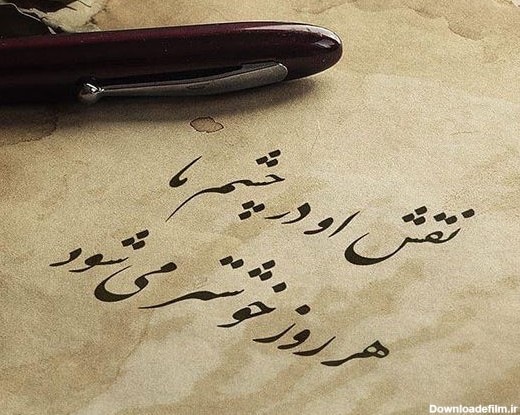 نقش او در چشم ما
هر روز خوشتر می شود
Downloadefilm.ir